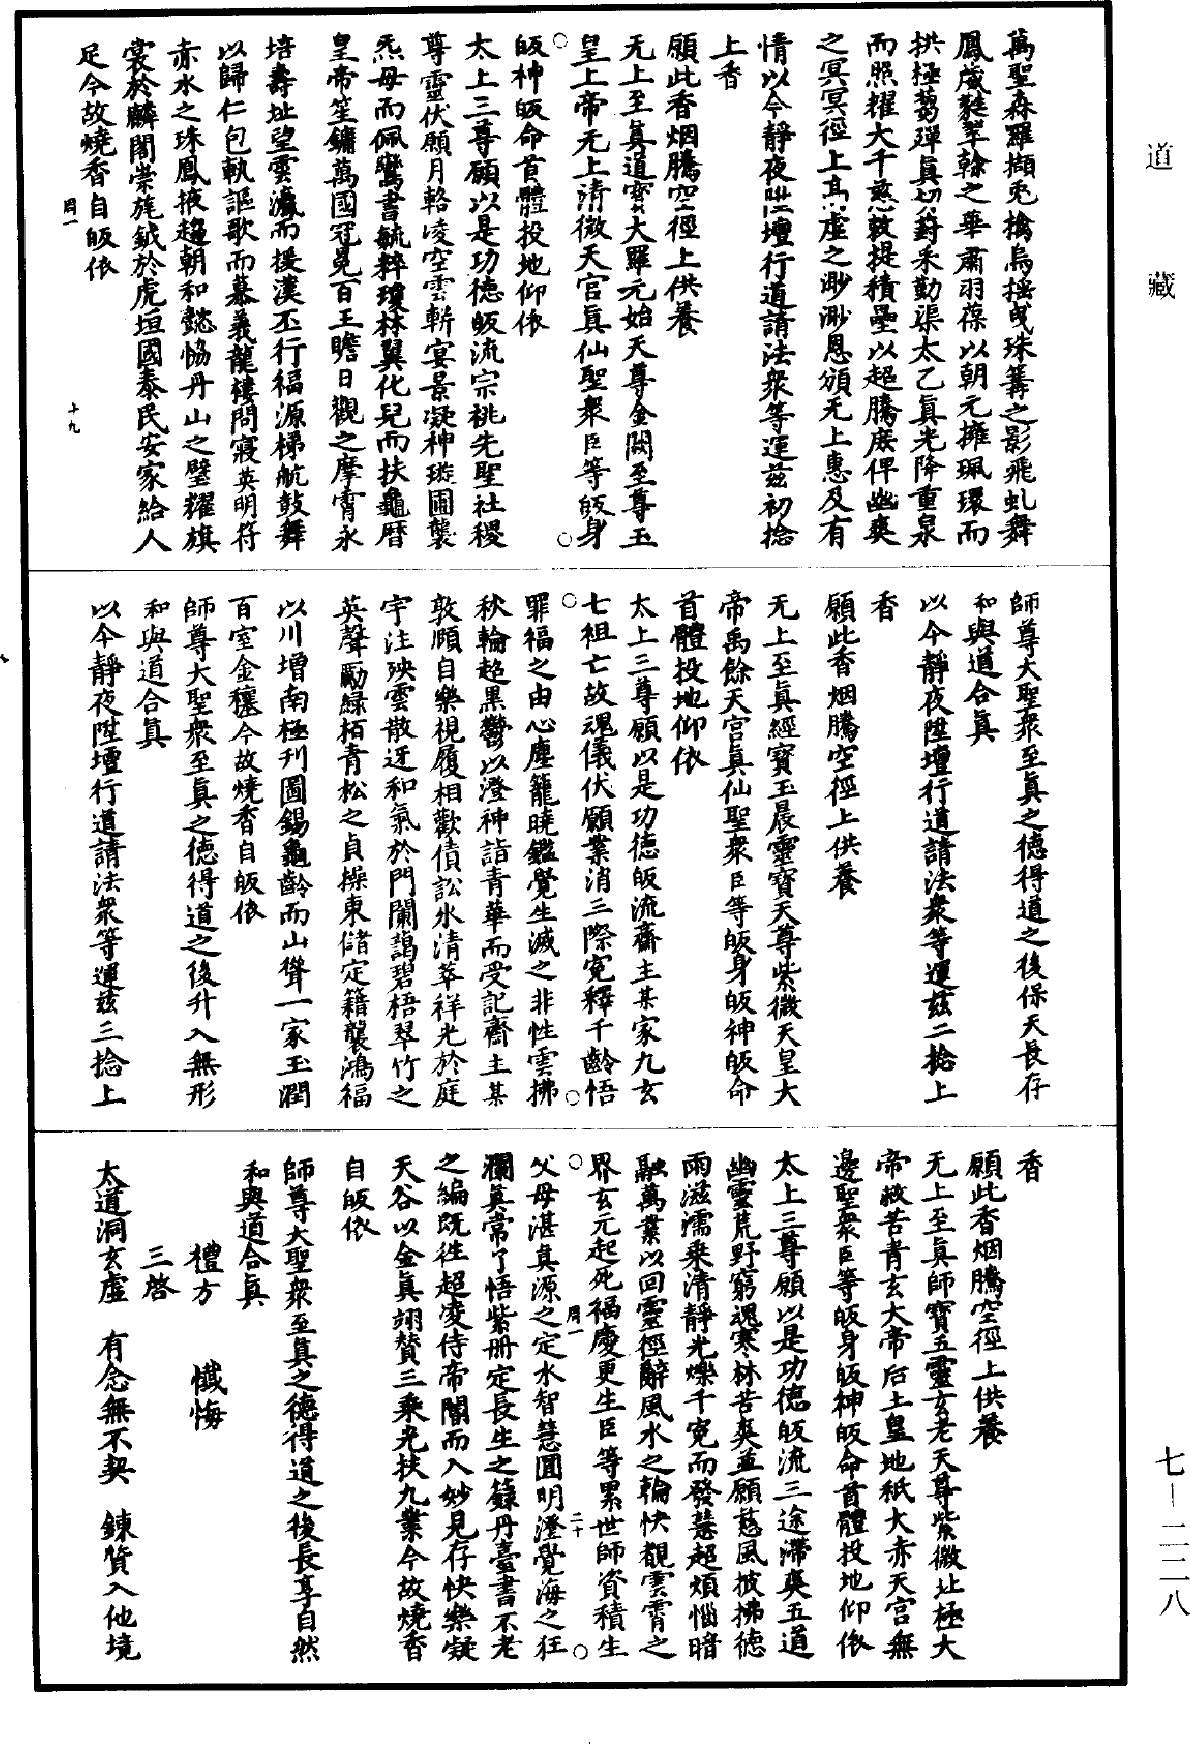 道藏
萬聖森羅擷兎擒烏搖曳珠籌之影飛虬舞
鳳葳蕤翠翰之華肅羽葆以朝元擁珮環而
拱極蒭殫眞切爵禾勤渠太乙眞光降重泉
而照耀大千慈敎提積壘以超騰庶俾幽爽
之冥冥徑上髙虛之渺渺恩頒无上惠及有
情以今靜夜陞壇行道請法衆等運茲初捻
上香
願此香烟騰空徑上供養
无上至眞道寶大羅元始天尊金闕至尊玉
皇上帝无上清微天宮眞仙聖衆臣等皈身
皈神皈命首體投地仰依
太上三尊願以是功德皈流宗祧先聖社稷
尊靈伏願月輅凌空雲輧宴景凝神璇圃襲
炁母而佩鸞書毓粹瓊林翼化兒而扶龜曆
皇帝笙鏞萬國冠冕百王瞻日觀之摩霄永
培壽址望雲瀛而援漢丕衍福源梯航鼓舞
以歸仁包執謳歌而慕義龍樓問寢英明符
赤水之珠鳳掖趨朝和懿恊丹山之璧耀旗
裳於麟閣崇旄鉞於虎垣國泰民安家給人
足今故燒香自皈依
周一
十九
師尊大聖衆至眞之德得道之後保天長存
和與道合眞
以今靜夜陞壇行道請法衆等運茲二捻上
香
願此香烟騰空徑上供養
无上至眞經寶玉晨靈寶天尊紫微天皇大
帝禹餘天宮眞仙聖衆臣等皈身皈神皈命
首體投地仰依
太上三尊願以是功德皈流齋主某家九玄
七祖亡故魂儀伏願業消三際寃釋千齡悟
罪福之由心塵籠曉鑑覺生滅之非性雲拂
秋輪超黑鬱以澄神詣青華而受記齋主某
敦頤自樂視履相歡債訟氷清萃祥光於庭
宇注殃雲散迓和氣於門闌藹碧梧翠竹之
英聲勵綠栢青松之貞操東儲定籍襲鴻福
以川增南極刋圖錫龜齡而山聳一家玉潤
百室金穰今故燒香自皈依
師尊大聖衆至眞之德得道之後升入無形
和與道合眞
以今靜夜陞壇行道請法衆等運茲三捻上
香
願此香烟騰空徑上供養
无上至眞師寶五靈玄老天尊紫微北極大
帝救苦青玄大帝后土皇地祇大赤天宮無
邊聖衆臣等皈身皈神皈命首體投地仰依
太上三尊願以是功德皈流三途滯爽五道
幽靈荒野窮魂寒林苦爽並願慈風披拂德
雨滋濡乘清靜光爍千寃而發慧超煩惱暗
融萬業以回靈徑辭風水之輪快覩雲霄之
界玄元起死福慶更生臣等累世師資積生
周一
二十
父母湛眞源之定水智慧圓明澄覺海之狂
瀾眞常了悟紫册定長生之籙丹臺書不老
之編既徃超凌侍帝閽而入妙見存快樂凝
天谷以金眞翊贊三乘光扶九業今故燒香
自皈依
師尊大聖衆至眞之德得道之後長享自然
和與道合眞
禮方　懺悔
三啓
太道洞玄虛　有念無不契　鍊質入仙境
七—二二八